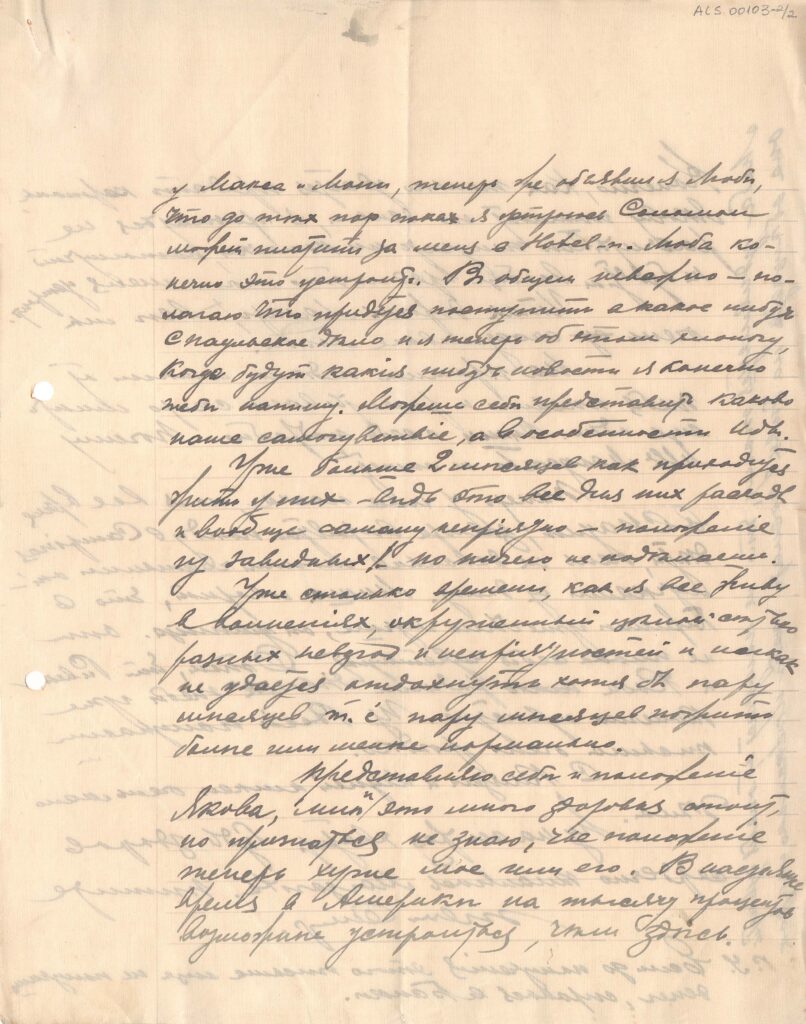 ALS.00103-2/2
у Макса и Мони, теперь же объявился Люби,
что до тех пор поках я устроюсь Соломон
может платить за меня в Hotel-и. Люба ко-
нечно это устроит. В общем неверно — по-
лагаю что придется поступить в какое нибудь
дѣло и я теперь об этом хлопочу,
когда будут какія нибудь новости я конечно
тебѣ напишу. Можешь себѣ представить каково
наше самочувствіе, а в особенности Иды.
Уже больше 2 мѣсяцев как приходится
жить у них — вѣдь это все для них расход
и вообще самому непріятно — положеніе
из завидных! — но ничего не подѣлаешь.
Уже столько времени, как я все живу
в волненіях, окруженный цѣлой
разных невзгод и непріятностей и никак
не удается отдохнуть хотя бы пару
мѣсяцев т. е пару мѣсяцев пожить
болѣе или менѣе нормально.
Представляю себѣ и положеніе
Якова, мнѣ это много здоровья стоит,
но признаться не знаю, чье положеніе
теперь хуже мое или его. В настоящее
время в Америкѣ на тысячу процентов
возможнѣе устроиться, чѣм здѣсь.